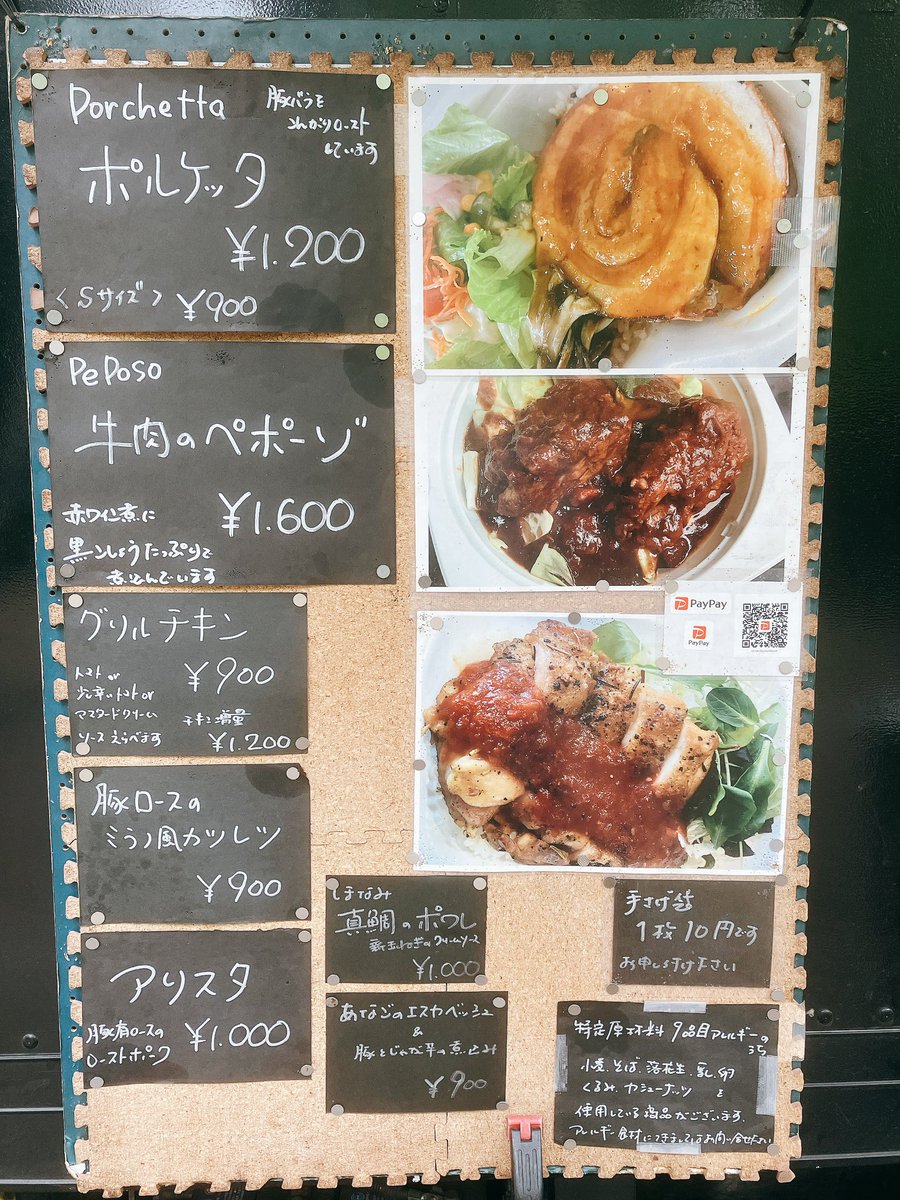 Porchetta
豚バラを
こんがりロースト
しています
ポルケッタ
¥1.200
<Sサイズ> ¥900
PePoso
牛肉のペポーゾ
¥1.600
赤ワイン煮に
黒こしょうたっぷりで
煮込んでいます
グリルチキン
¥900
トマト or
ピリ辛トマト or
マスタードクリーム
ソースえらべます
チキン増量
¥1.200
豚ロースの
ミラノ風カツレツ
¥900
アリスタ
豚肩ロースの
ローストポーク
¥1.000
PayPay
PayPay
しまなみ
真鯛のポワレ
新玉ねぎのクリームソース
¥1.000
あなごのエスカベッシュ
&
豚とじゃが芋の煮込み
¥900
手さげ袋
1枚10円です
お申し付け下さい
特定原材料9品目アレルギーの
うち
小麦、そば、落花生、乳、卵
くるみ、カシューナッツ を
使用している商品がございます。
アレルギー食材につきましてはお問い合せください